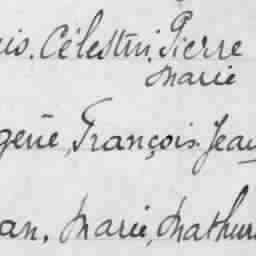 is. Célestin. Pierre
Marie
gène, François. Jean
an. Marie, Mathur